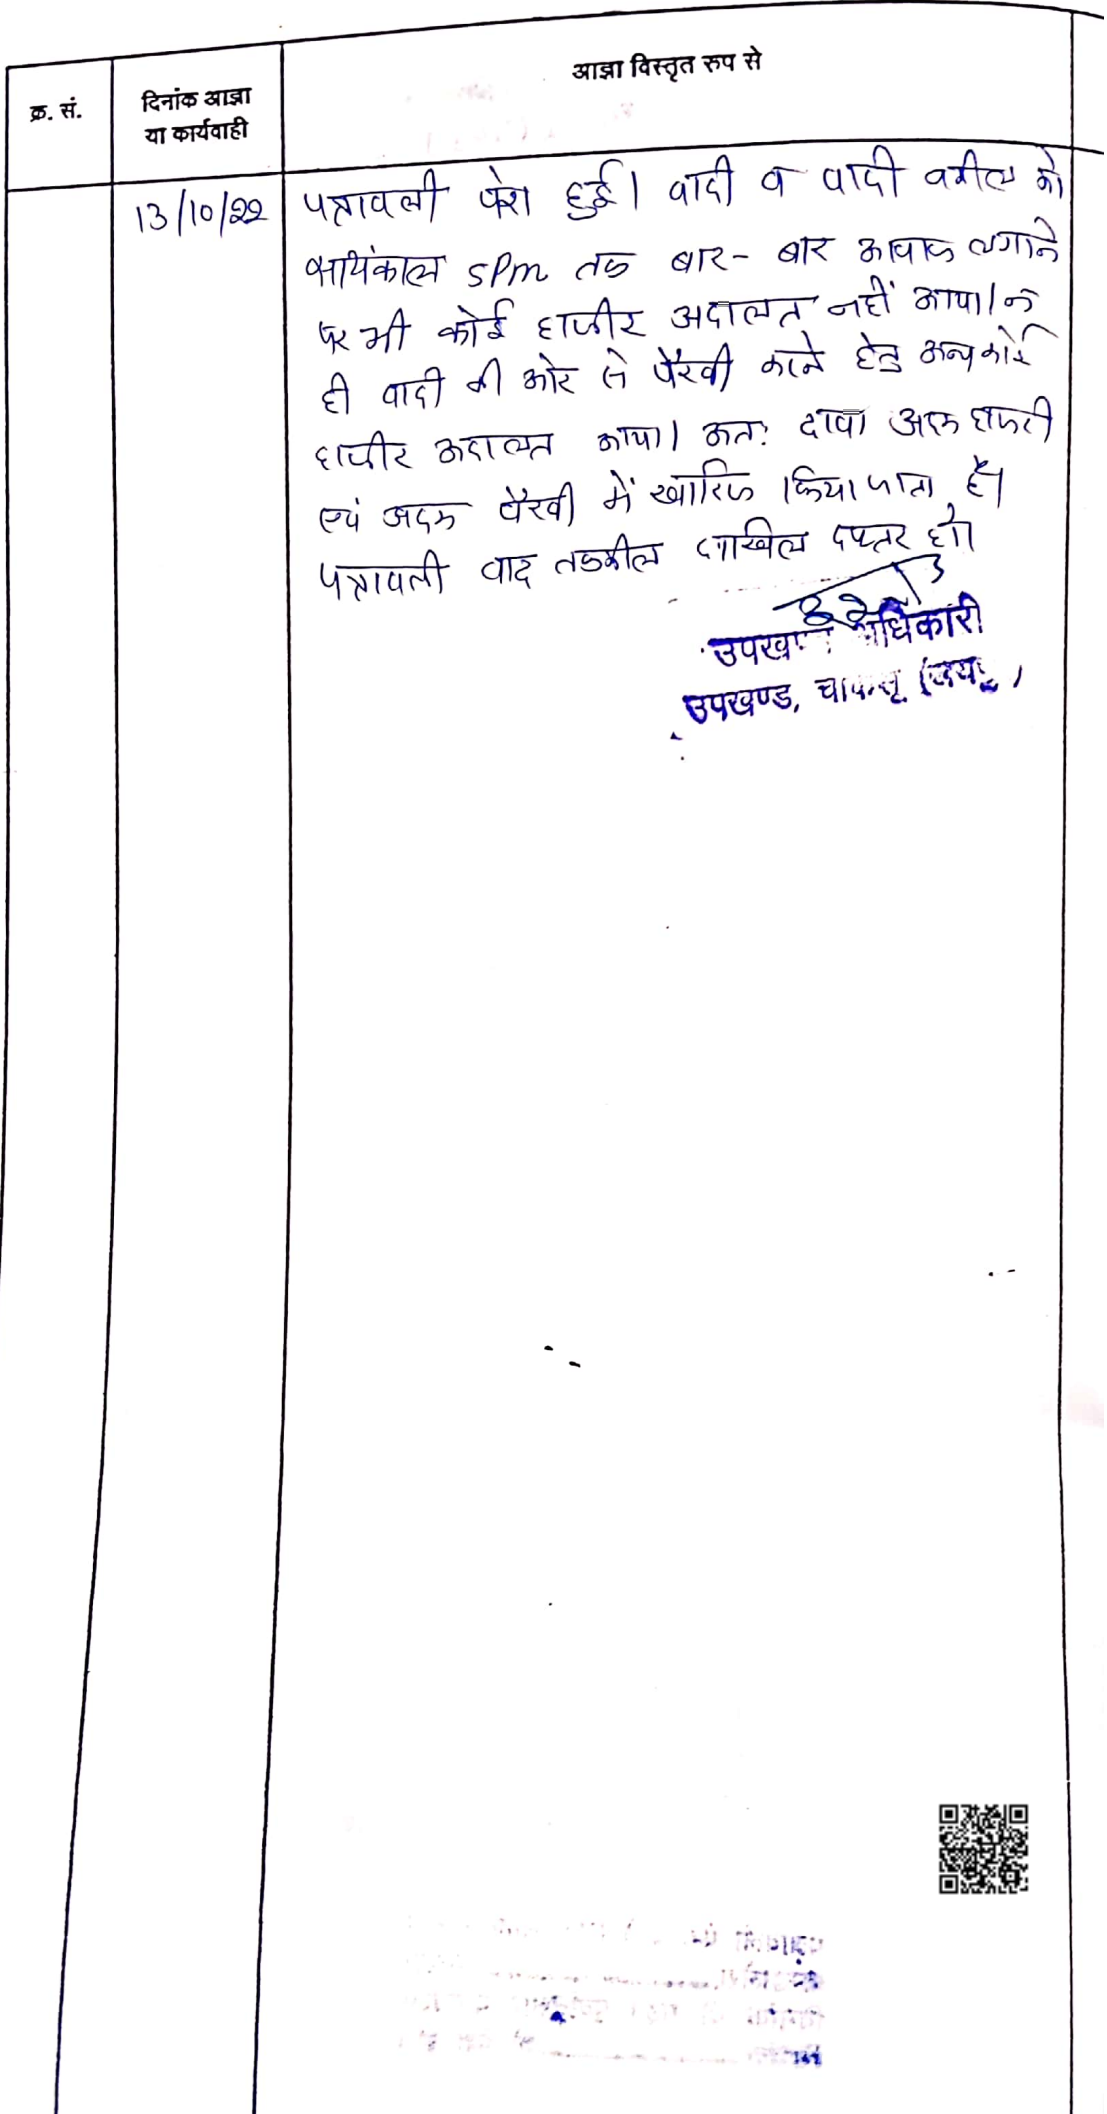 क्र. सं.
दिनांक आज्ञा
या कार्यवाही
आज्ञा विस्तृत रुप से
13/10/22
पत्रावली पेश हुई। वादी व वादी वकील को
सायंकाल 5Pm तक बार- बार आवाज लगाने
पर भी कोई हाजीर अदालत नहीं आया। न
ही वादी की ओर से पैरवी करने हेतु अन्य कोई
हाजीर अदालत आया। अतः दावा अदम हाजरी
एवं अदम पैरवी में खारिज किया जाता है।
पत्रावली वाद तकमील दाखिल दफ्तर हो।
उपखण्ड अधिकारी
उपखण्ड, चाकसू (जयपुर)